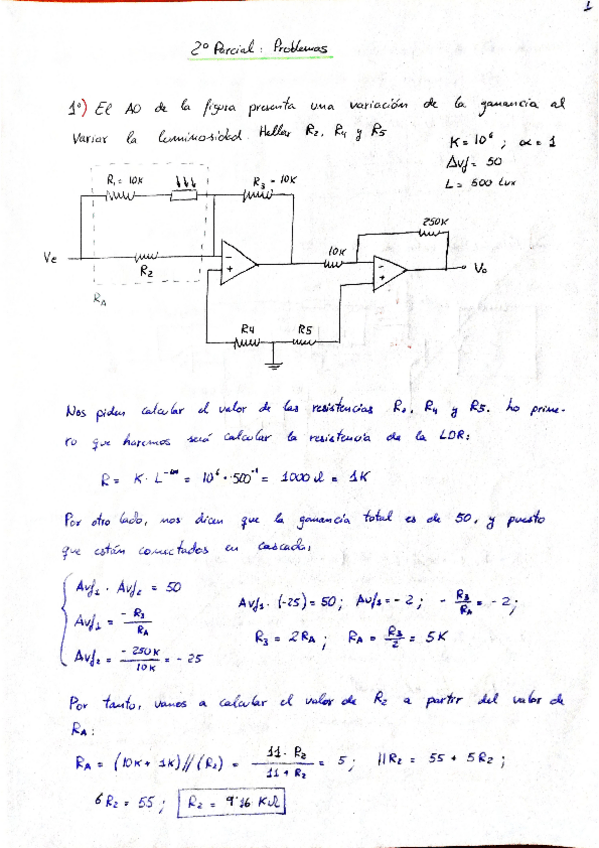 1
2º Parcial: Problemas
1º) El AO de la figura presenta una variación de la ganancia al
variar la luminosidad. Hallar R2, R4 y R5
K = 10^6 ; α = 1
Avf = 50
L = 500 Lux
R1 = 10K
R3 = 10K
250K
Ve
10K
R2
Vo
RA
R4
R5
Nos piden calcular el valor de las resistencias R2, R4 y R5. Lo prime-
ro que haremos será calcular la resistencia de la LDR:
R = K · L^-α = 10^6 · 500^-1 = 1000 Ω = 1K
Por otro lado, nos dicen que la ganancia total es de 50, y puesto
que están conectados en cascada:
Avf1 · Avf2 = 50
Avf1 = -R3/RA
Avf2 = -250K/10K = -25
Avf1 · (-25) = 50 ; Avf1 = -2 ; -R3/RA = -2 ;
R3 = 2RA ; RA = R3/2 = 5K
Por tanto, vamos a calcular el valor de R2 a partir del valor de
RA:
RA = (10K + 1K) // (R2) = 11 · R2/11 + R2 = 5 ; 11R2 = 55 + 5R2 ;
6R2 = 55 ; R2 = 9'16 KΩ